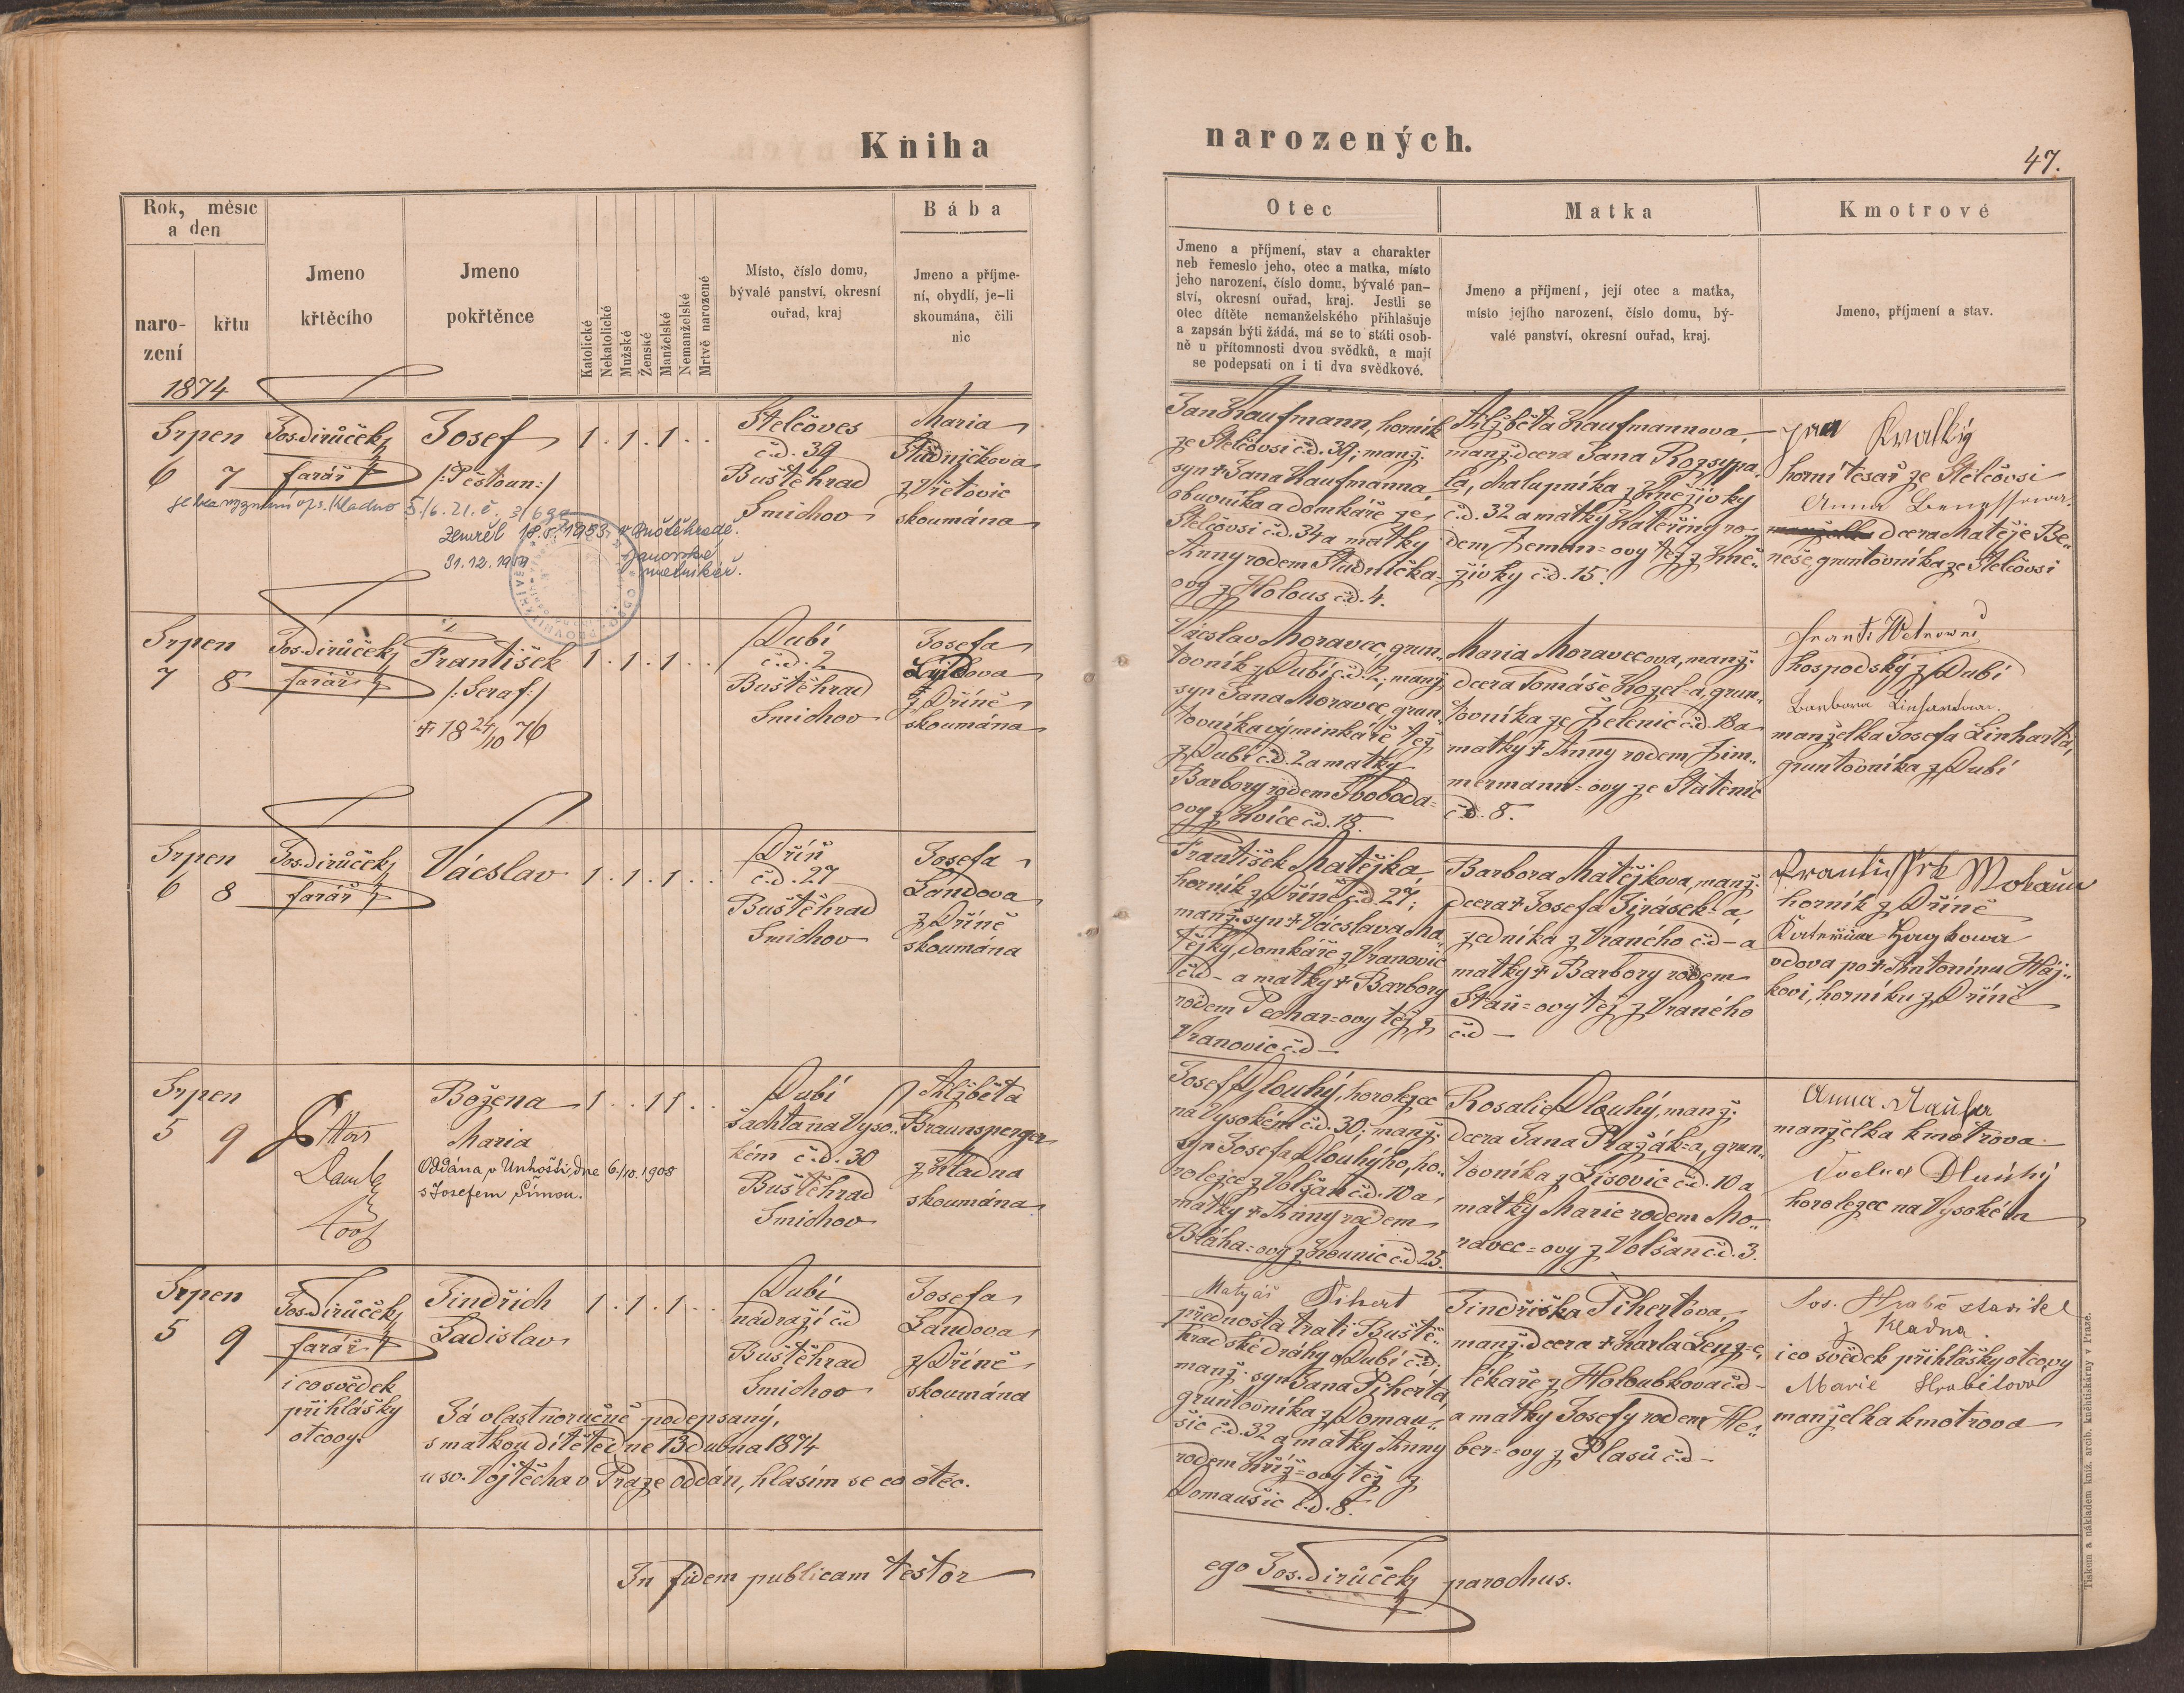 Kniha
narozených.
47.
Rok, měsíc
a den
naro-
zení
křtu
Jmeno
křtěcího
Jmeno
pokřtěnce
Katolické
Nekatolické
Mužské
Ženské
Manželské
Nemanželské
Mrtvě narozené
Místo, číslo domu,
bývalé panství, okresní
ouřad, kraj
Bába
Jmeno a příjme-
ní, obydlí, je-li
skoumána, čili
nic
Otec
Jmeno a příjmení, stav a charakter
neb řemeslo jeho, otec a matka, místo
jeho narození, číslo domu, bývalé pan-
ství, okresní ouřad, kraj. Jestli se
otec dítěte nemanželského přihlašuje
a zapsán býti žádá, má se to státi osob-
ně u přítomnosti dvou svědků, a mají
se podepsati on i ti dva svědkové.
Matka
Jmeno a příjmení, její otec a matka,
místo jejího narození, číslo domu, bý-
valé panství, okresní ouřad, kraj.
Kmotrové
Jmeno, příjmení a stav.
1874
Srpen
6 7
Jos. Dirůček
farář
Josef
/:Pěstoun:/
1 . 1 . 1 . .
je bez vyznání
Kladno
zemřel 18.5.1953 v Buštěhradě.
31.12.1959
matrikář.
Stelčoves
č.d. 39
Buštěhrad
Smichov
Maria
Studničkova
z Třetovic
skoumána
Jan Kaufmann, horník
ze Stelčovsi č.d. 39; manž.
syn † Jana Kaufmanna,
obuvníka a domkáře ze
Stelčovsi č.d. 34 a matky
Anny rodem Studnička-
ovy z Holous č.d. 4.
Alžběta Kaufmannova,
manž. dcera Jana Rozsypa-
la, chalupníka z Hněživky
č.d. 32 a matky Kateřiny ro-
dem Zeman-ovy též z Hně-
živky č.d. 15.
Jan Kralký
horní tesař ze Stelčovsi
Anna Benessowa
dcera Matěje Be-
neše, gruntovníka ze Stelčovsi
Srpen
7 8
Jos. Dirůček
farář
František
/:Seraf:/
† 18 24/10 76
1 . 1 . 1 . .
Dubí
č.d. 2
Buštěhrad
Smichov
Josefa
z Dříně
skoumána
Vácslav Moravec, grun-
tovník z Dubí č.d. 2; manž.
syn Jana Moravec, grun-
tovníka výminkáře též
z Dubí č.d. 2 a matky
Barbory rodem Svoboda-
ovy z Hvíce č.d. 18.
Maria Moravecova, manž.
dcera Tomáše Kozel-a, grun-
tovníka ze Želenic č.d. 18 a
matky † Anny rodem Zim-
mermann-ovy ze Statenic
č.d. 8.
hospodský z Dubí
Barbora Linhartowa.
manželka Josefa Linharta,
gruntovníka z Dubí
Srpen
6 8
Jos. Dirůček
farář
Vácslav
1 . 1 . 1 . .
Dříň
č.d. 27
Buštěhrad
Smichov
Josefa
Landova
z Dříně
skoumána
František Matějka,
horník z Dříně č.d. 27;
manž. syn † Vácslava Ma-
tějky, domkáře z Vranovic
č.d – a matky † Barbory
rodem Pechar-ovy též z
Vranovic č.d –
Barbora Matějkova, manž.
dcera † Josefa Jirásek-a,
zedníka z Vraného č.d – a
matky † Barbory rodem
Staň-ovy též z Vraného
č.d –
horník z Dříně
Kateřina Haykowa
vdova po † Antonínu Háj-
kovi, horníku z Dříně
Srpen
5 9
Božena
Maria
Oddána v Unhošti, dne 6./10. 1908
s Josefem Šímou.
1 . . 1 1 . .
Dubí
šachta na Vyso-
kém č.d. 30
Buštěhrad
Smichov
Alžběta
Braunsperger
z Kladna
skoumána
Josef Dlouhý, horolezec
na Vysokém č.d. 30; manž.
syn Josefa Dlouhýho, ho-
rolezce z Volšan č.d. 10 a
matky † Anny rodem
Bláha-ovy z Kounic č.d 25.
Rosalie Dlouhý, manž.
dcera Jana Pražák-a, grun-
tovníka z Lisovic č.d. 10 a
matky Marie rodem Mo-
ravec-ovy z Volšan č.d. 3.
manželka kmotrova
Dlauhý
horolezec na Vysokém
Srpen
5 9
Jos. Dirůček
farář
i co svědek
přihlášky
otcovy.
Jindřich
Ladislav
1 . 1 . 1 . .
Dubí
nádraží č.d
Buštěhrad
Smichov
Josefa
Landova
z Dříně
skoumána
Já vlastnoručně podepsaný,
s matkou dítěte dne 13 dubna 1874
u sv. Vojtěcha v Praze oddán, hlasím se co otec.
Matyáš Pihert
přednosta trati Buště-
hradské dráhy v Dubí č.d;
manž. syn Jana Piherta,
gruntovníka z Domau-
šic č.d. 32 a matky Anny
rodem Kříž-ovy též z
Domaušic č.d. 8.
Jindřiška Pihertova,
manž. dcera † Karla Lenz-e,
lékaře z Holoubkova č.d –
a matky Josefy rodem He-
ber-ovy z Plasů č.d –
Jos. Hrabě stavitel
z Kladna.
i co svědek přihlášky otcovy
Marie Hrabětova
manželka kmotrova
In fidem publicam testor
ego Jos. Dirůček parochus.
Tiskem a nákladem kníž. arcib. knihtiskárny v Praze.